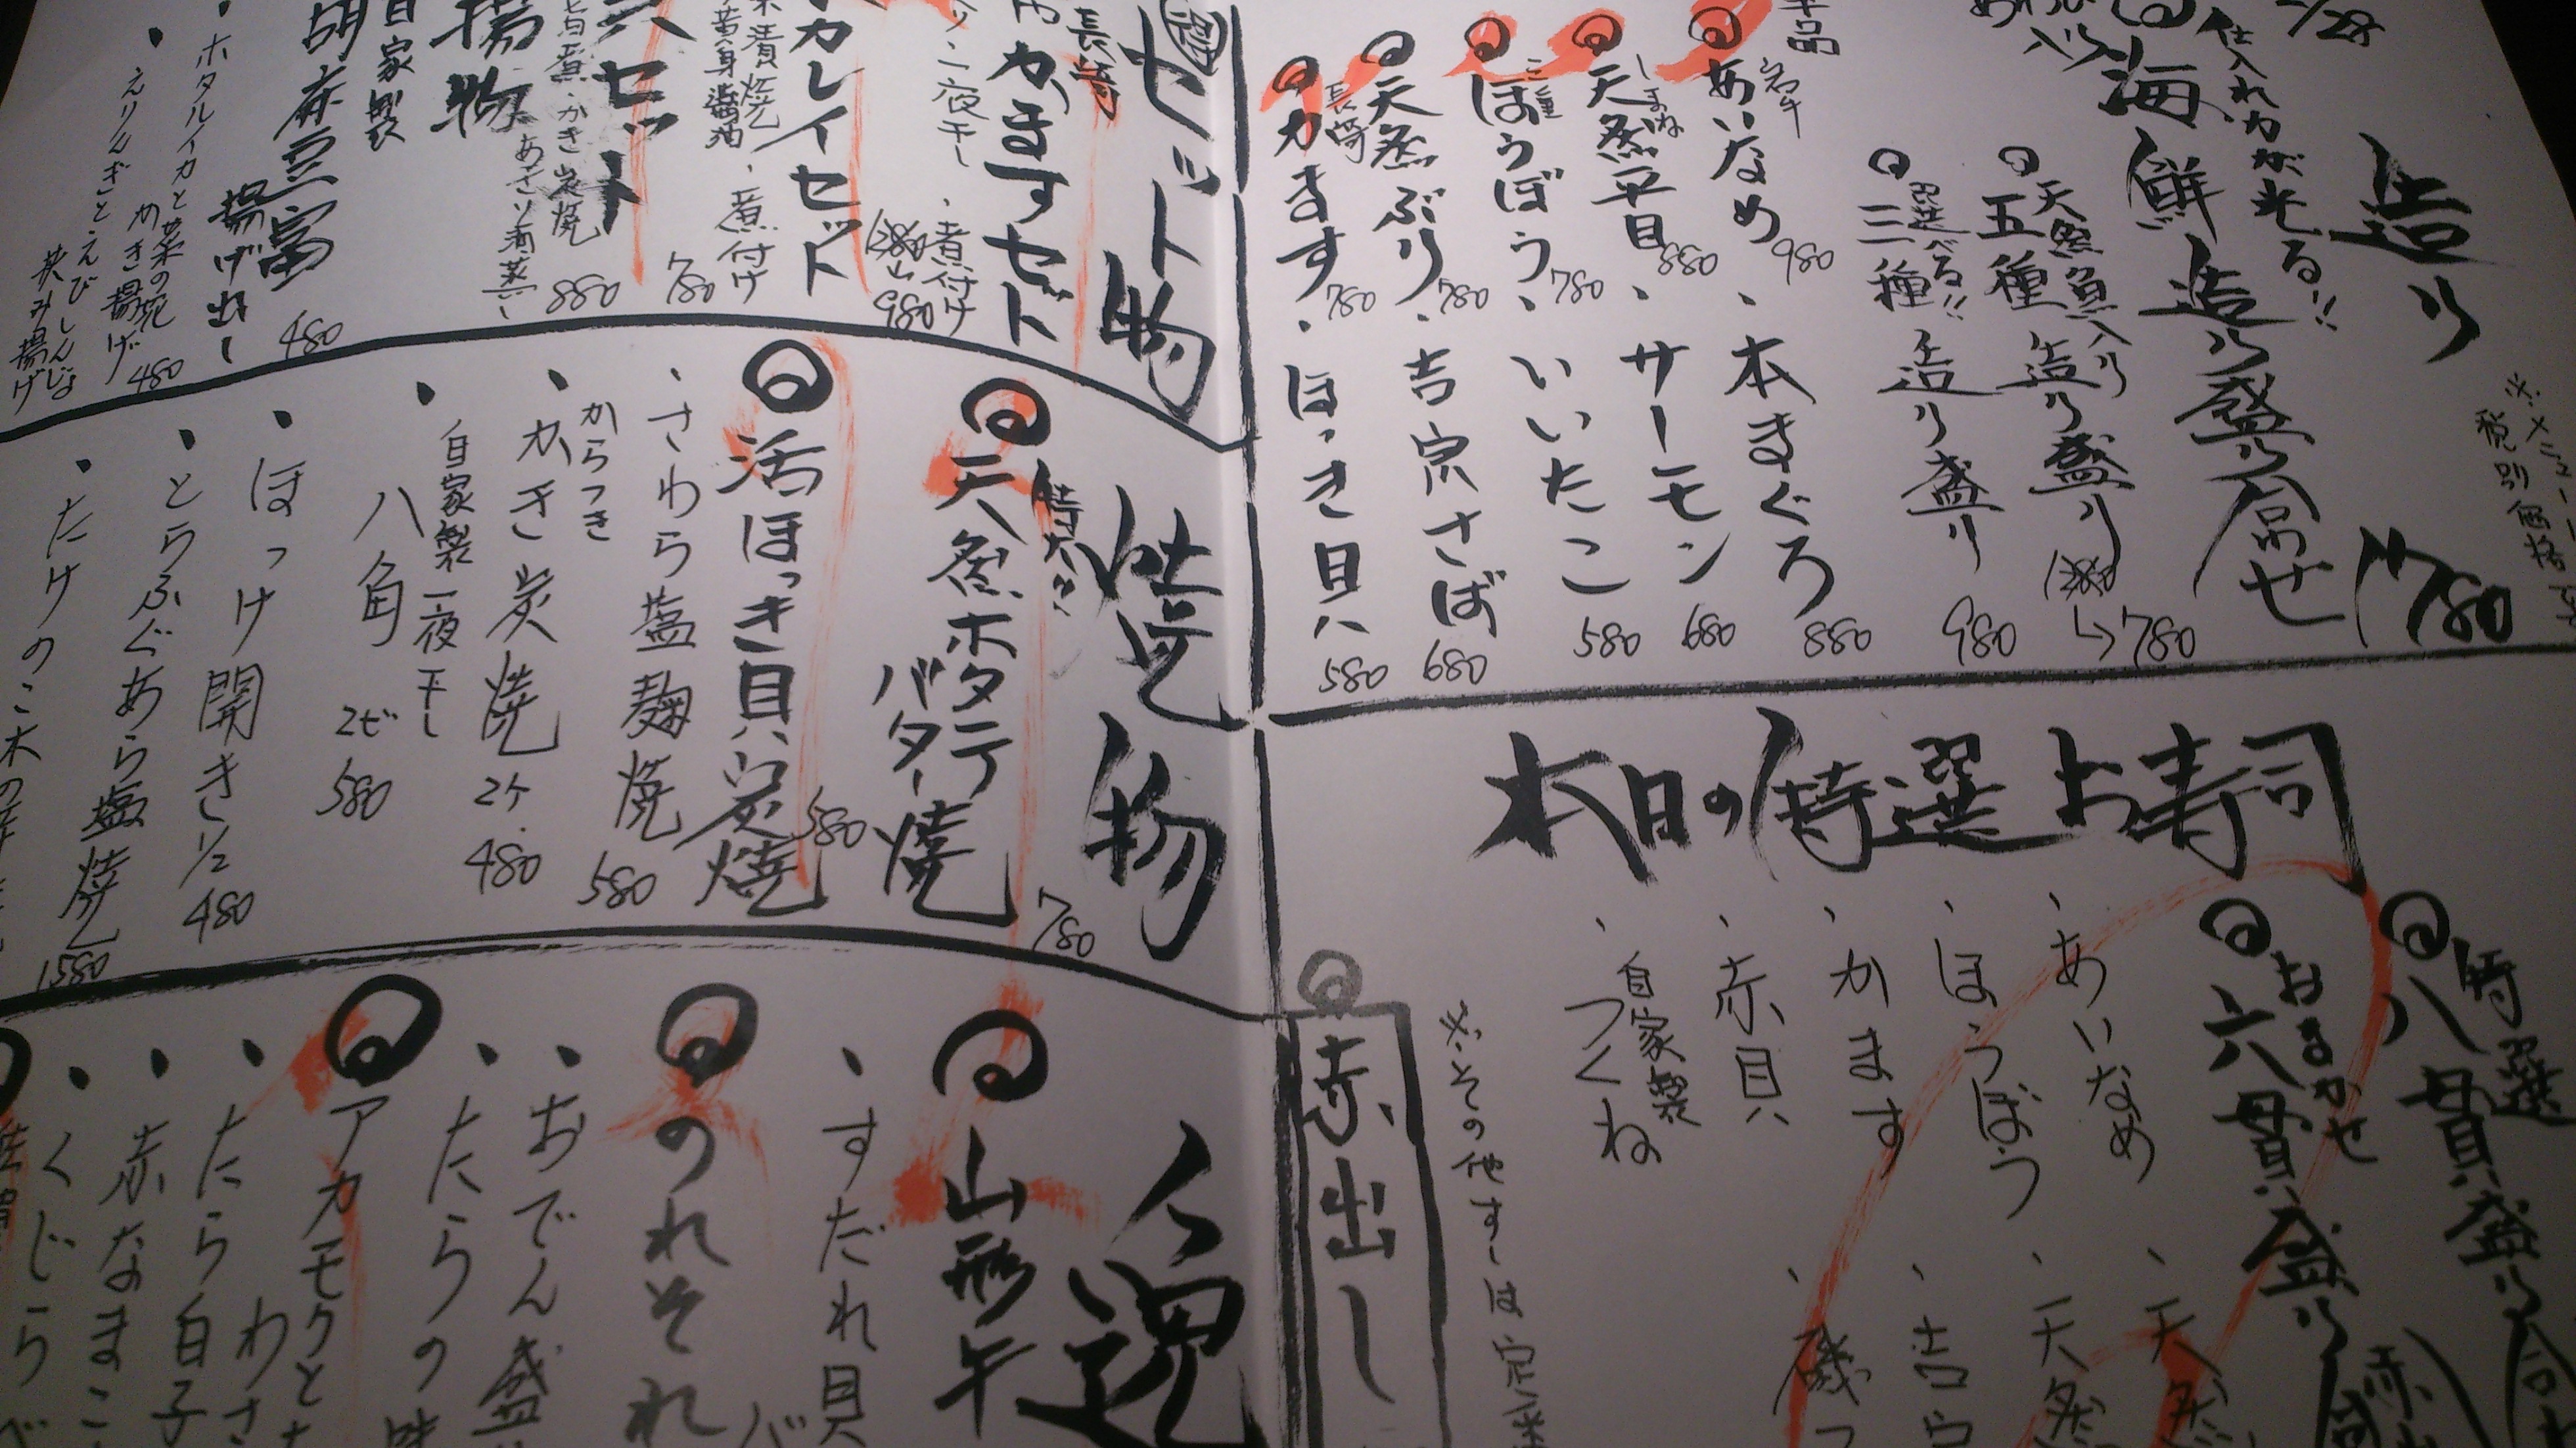 2/28
仕入れ力が光る!!
造り
※メニュー
税別価格
海鮮造り盛り合せ
1,780
天然魚入り
五種造り盛り
1380
→780
選べる!!
三種造り盛り
980
単品
岩手
あいなめ
980
しまね
天然平目
880
ほうぼう
780
天然ぶり
780
長崎
かます
780
本まぐろ
880
サーモン
680
いいたこ
580
吉宗さば
680
ほっき貝
580
本日の特選お寿司
特選
八貫盛り
おまかせ
六貫盛り
あいなめ
ほうぼう
かます
赤貝
自家製
つくね
※その他すしは定番
赤出し
セット物
長崎
かますセット
一夜干し・煮付け
980
カレイセット
煮付け
黄身醤油
780
セット
かき炭焼
あさり酒蒸し
880
揚物
自家製
胡麻豆富
揚げ出し
480
ホタルイカと菜の花
かき揚げ
480
えりんぎとえびしんじょ
挟み揚げ
焼き物
特大!!
天然ホタテ
バター焼
780
活ほっき貝炭焼
580
さわら塩麹焼
580
からつき
かき炭焼
2ケ
480
自家製一夜干し
八角
580
ほっけ開き1/2
480
とらふぐあら塩焼
1580
たけのこ木の芽
一選
山形牛
すだれ貝
のれそれ
おでん盛
たらの
アカモクと
わさ
たら白子
赤なまこ
くじらべ